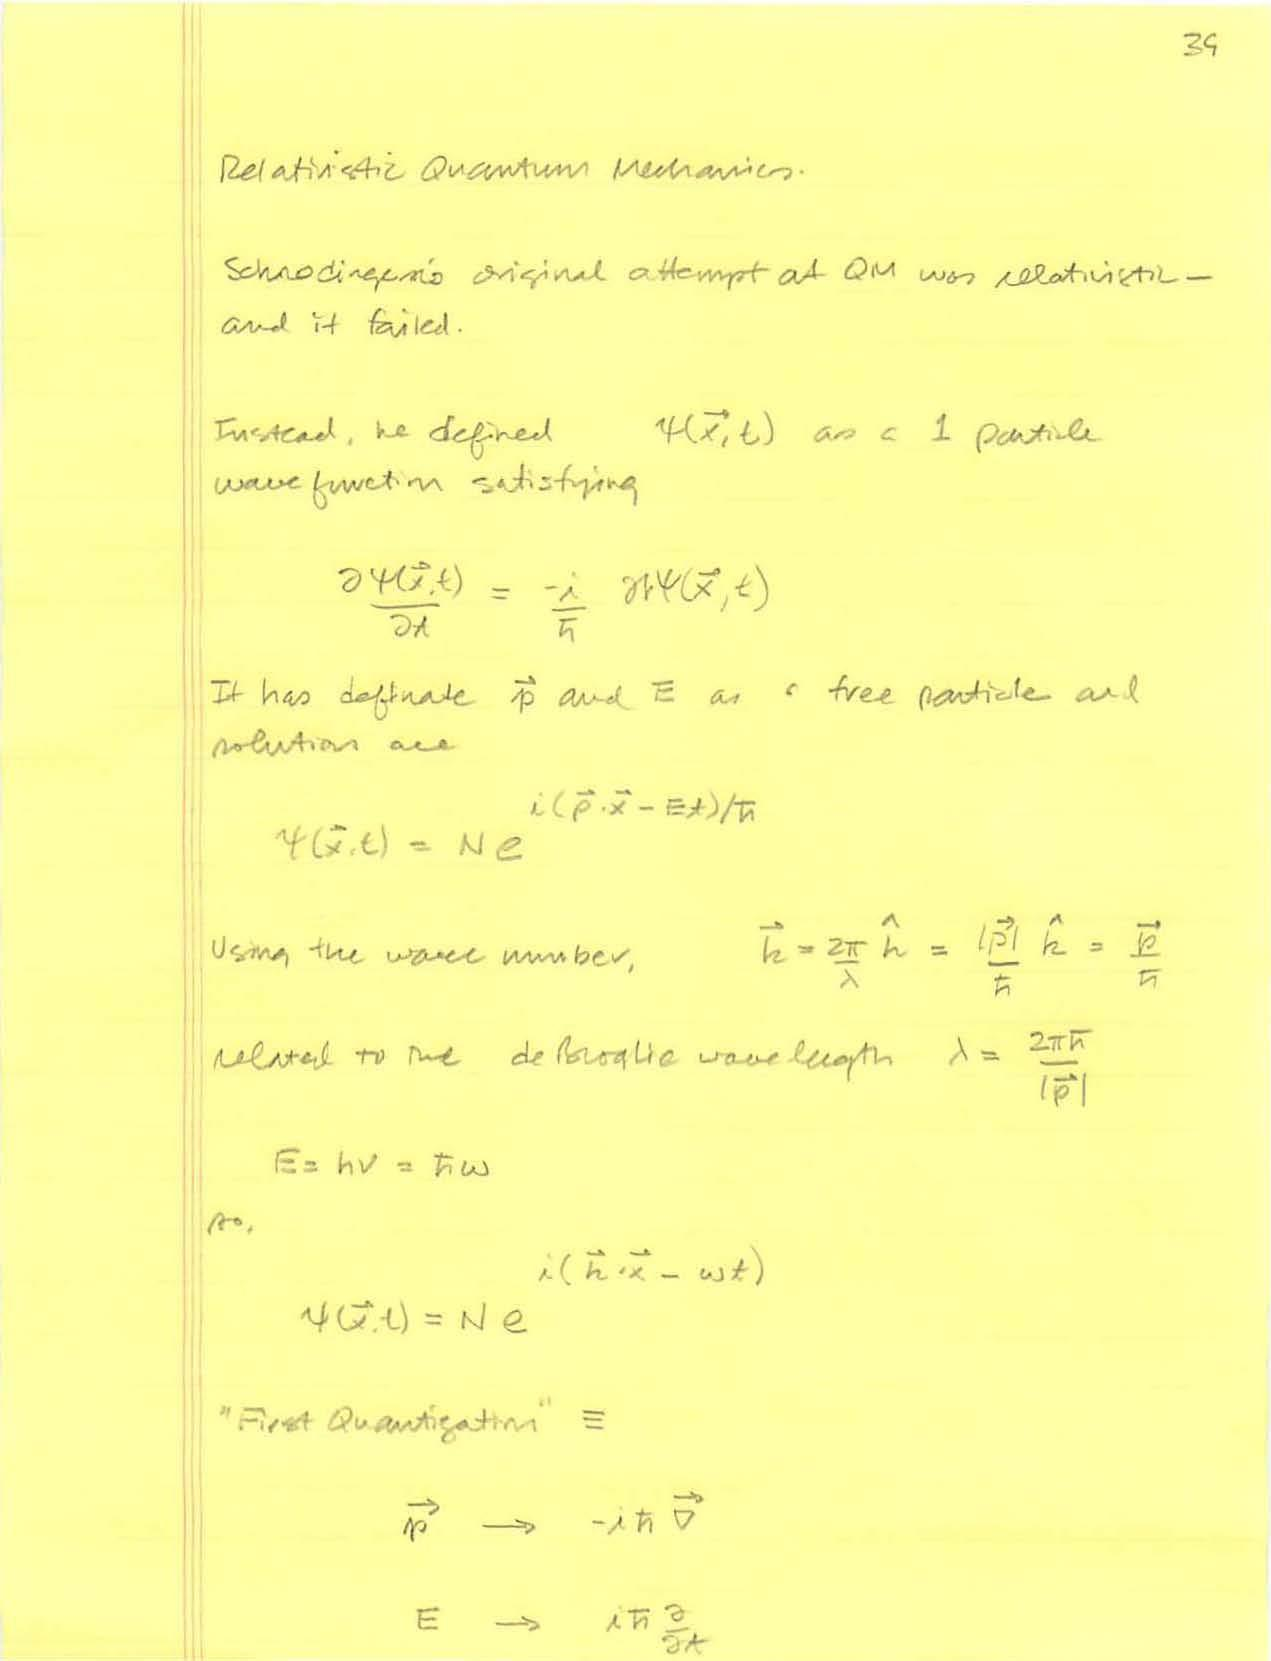 39
Relativistic Quantum Mechanics.
Schrodinger's original attempt at QM was relativistic —
and it failed.
Instead, he defined ψ(x⃗, t) as a 1 particle
wavefunction satisfying
∂ψ(x⃗,t)/∂t = -i/ħ ℋψ(x⃗, t)
It has definate p⃗ and E as a free particle and
solution are
ψ(x⃗,t) = N e^{i(p⃗·x⃗ - Et)/ħ}
Using the wave number, k⃗ = 2π/λ k̂ = |p⃗|/ħ k̂ = p⃗/ħ
related to the deBroglie wavelength λ = 2πħ/|p⃗|
E = hν = ħω
so,
ψ(x⃗,t) = N e^{i(k⃗·x⃗ - ωt)}
"First Quantization" ≡
p⃗ → -iħ ∇⃗
E → iħ ∂/∂t